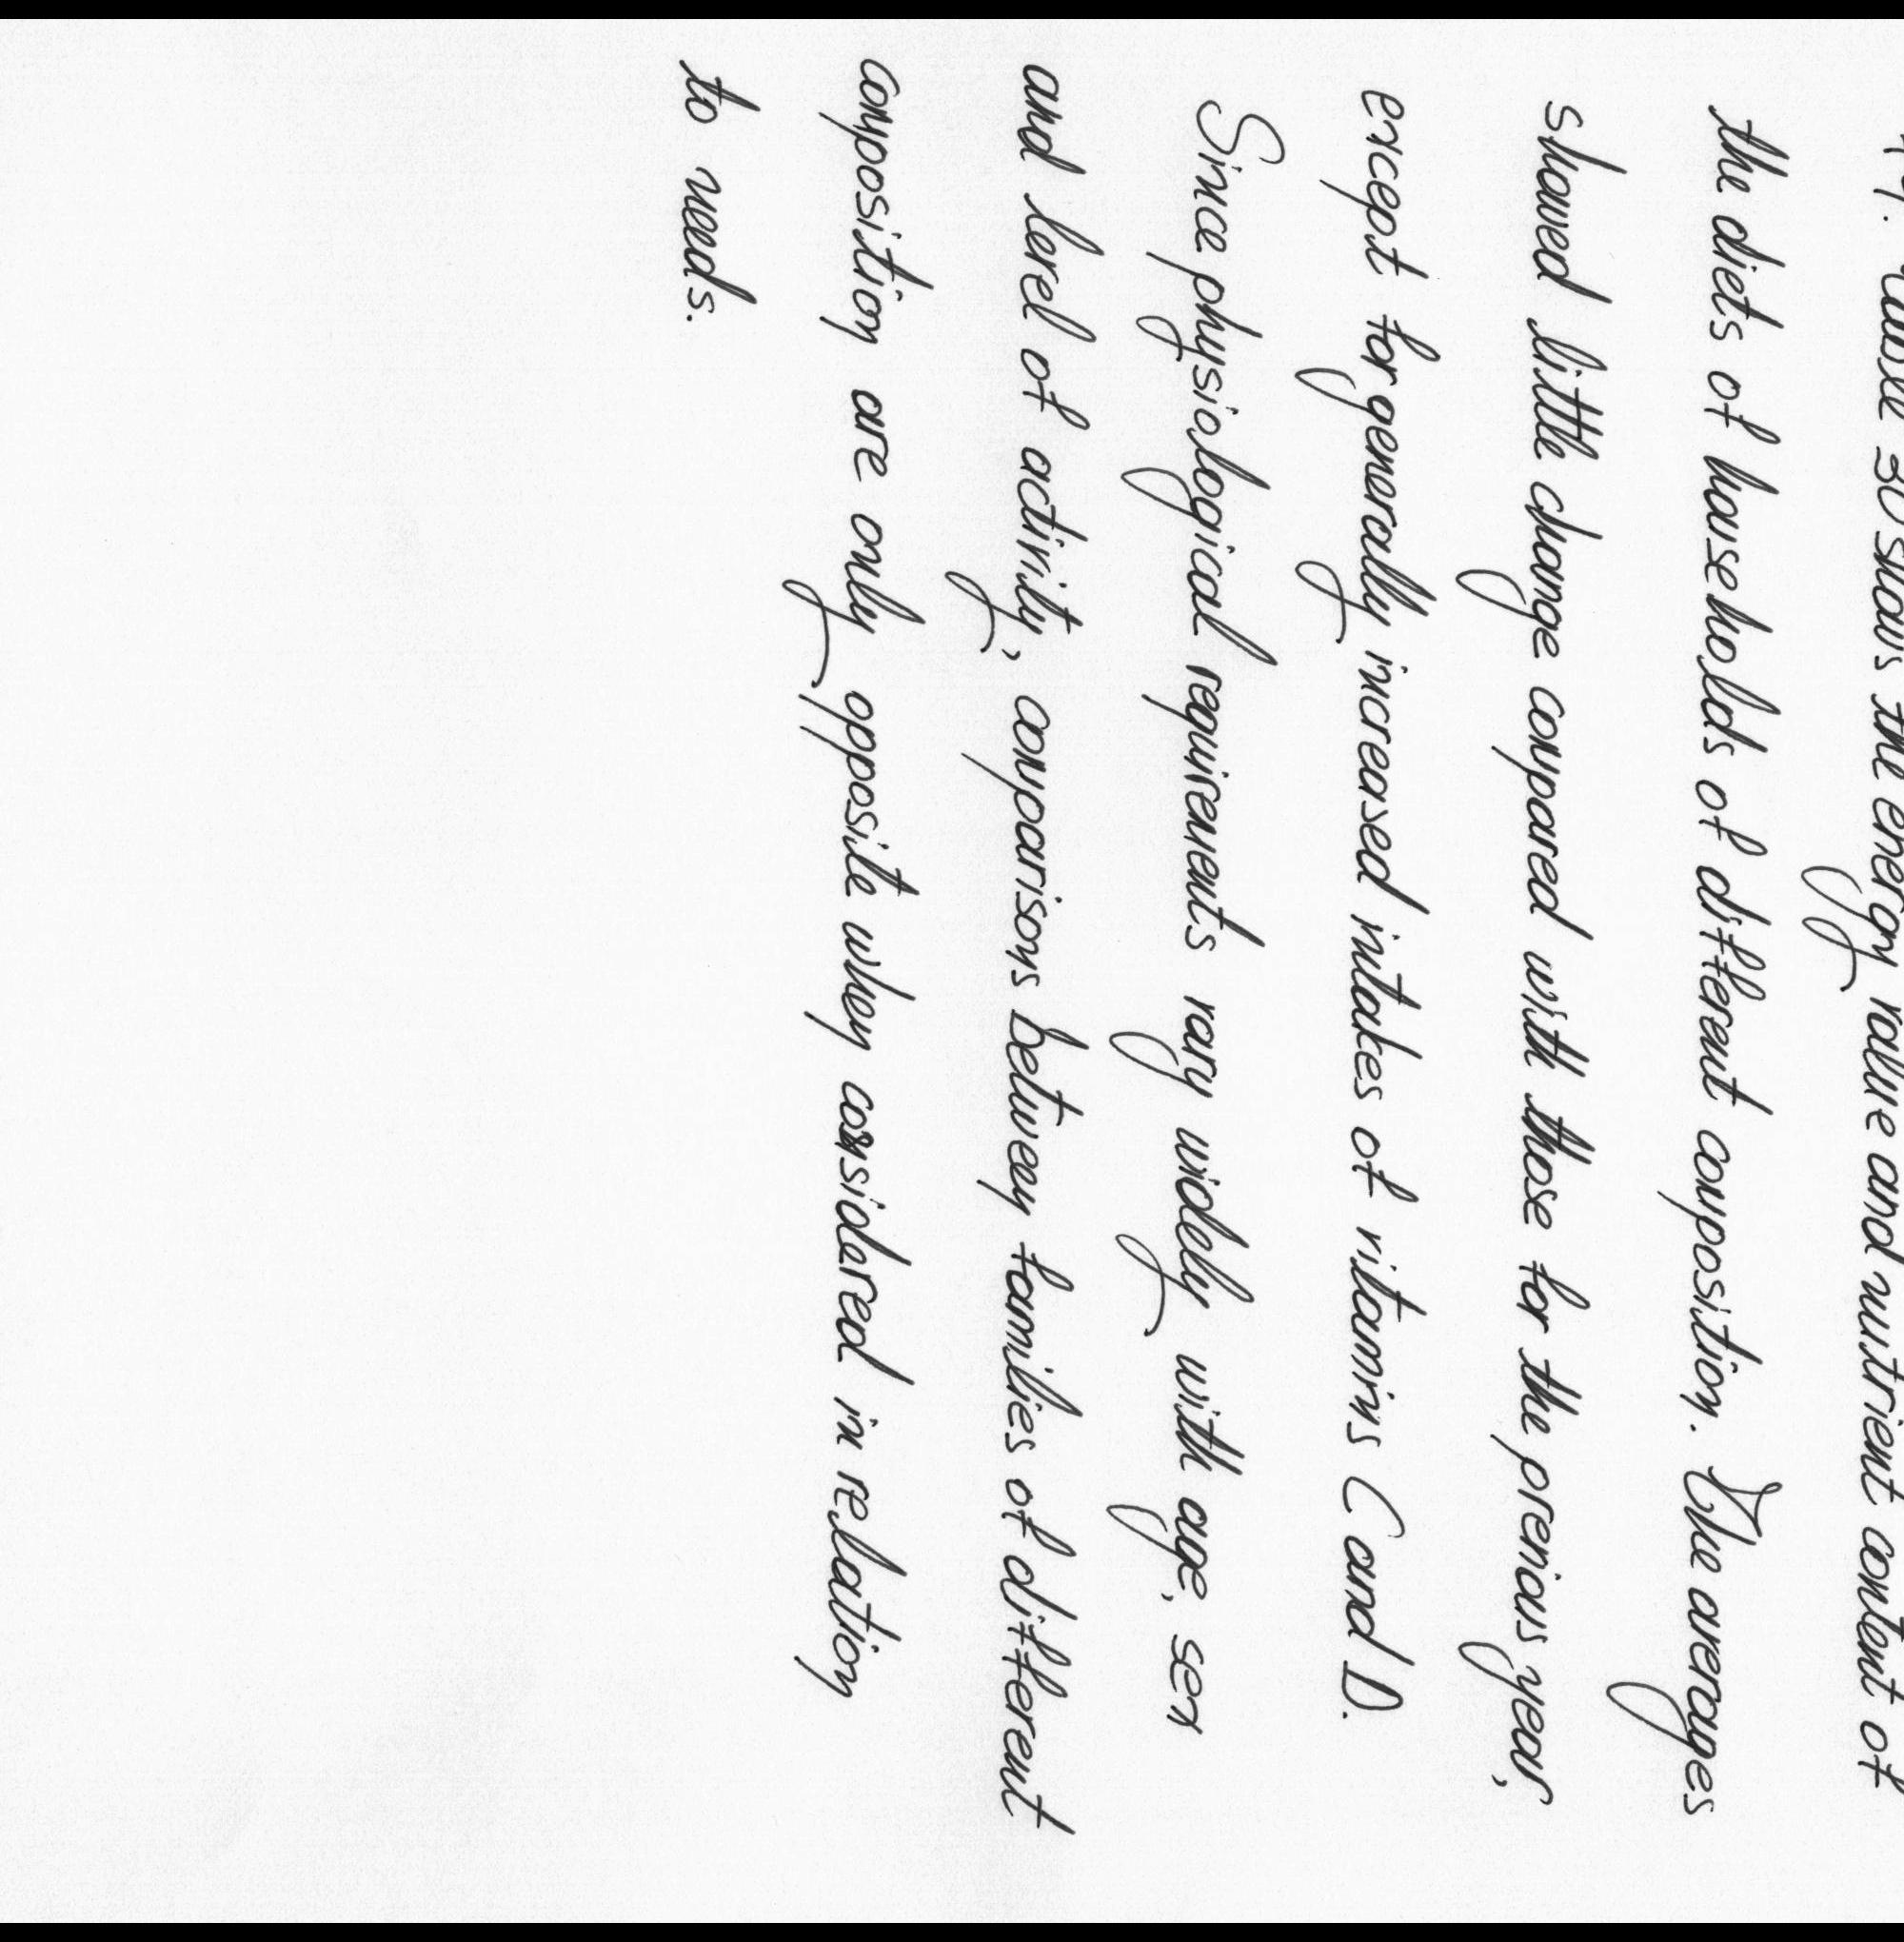 Table 30 shows the energy value and nutrient content of
the diets of households of different composition. The averages
showed little change compared with those for the previous year,
except for generally increased intakes of vitamins C and D.
Since physiological requirements vary widely with age, sex
and level of activity, comparisons between families of different
composition are only opposite when considered in relation
to needs.